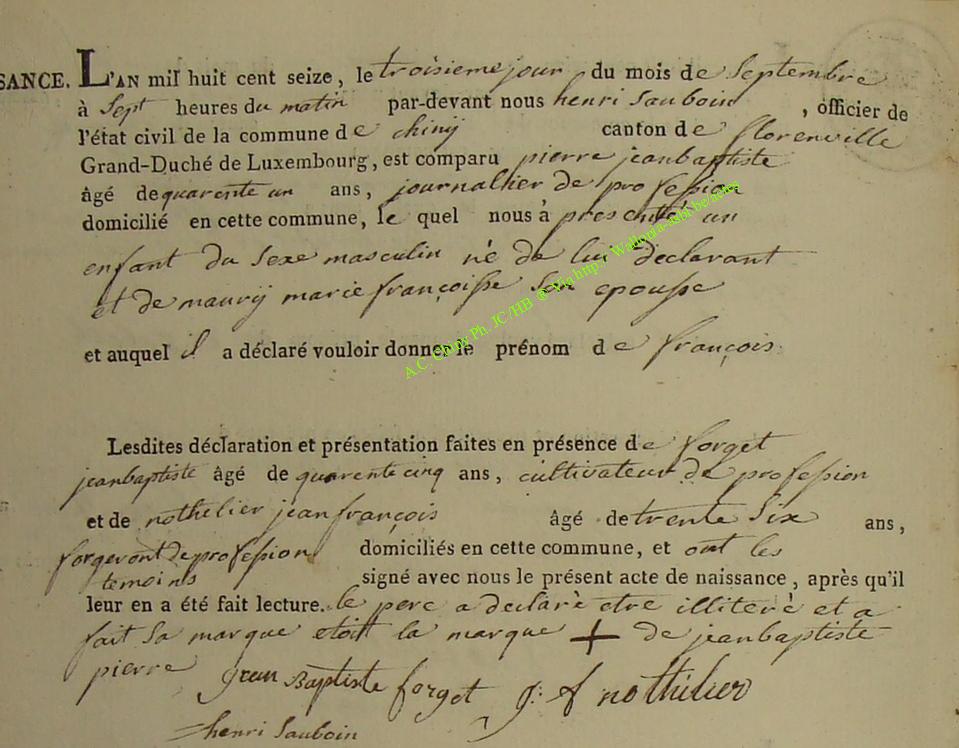 SANCE. L'AN mil huit cent seize, le troisieme jour du mois de Septembre
à Sept heures du matin par-devant nous henri Sauboin, officier de
l'état civil de la commune de chinÿ canton de florenville
Grand-Duché de Luxembourg, est comparu pierre jeanbaptiste
âgé de quarente un ans, journallier de profession
domicilié en cette commune, le quel nous à presenté un
enfant du Sexe masculin né de lui déclarant
et de maurÿ marie françoisse Son epousse
et auquel il a déclaré vouloir donner le prénom de françois
Lesdites déclaration et présentation faites en présence de forget
jeanbaptiste âgé de quarente cinq ans, cultivateur de profession
et de nothelier jean françois âgé de trente Six ans,
forgeront de profession domiciliés en cette commune, et ont les
temoins signé avec nous le présent acte de naissance, après qu'il
leur en a été fait lecture. le pere a declarè etre illiterè et a
fait Sa marque etoit la marque + de jeanbaptiste
pierre Jean Baptiste forget J: f nothelier
henri Sauboin
A.C. Chiny Ph. JC/HB @ Via http://Wallonia-asbl.be/actes